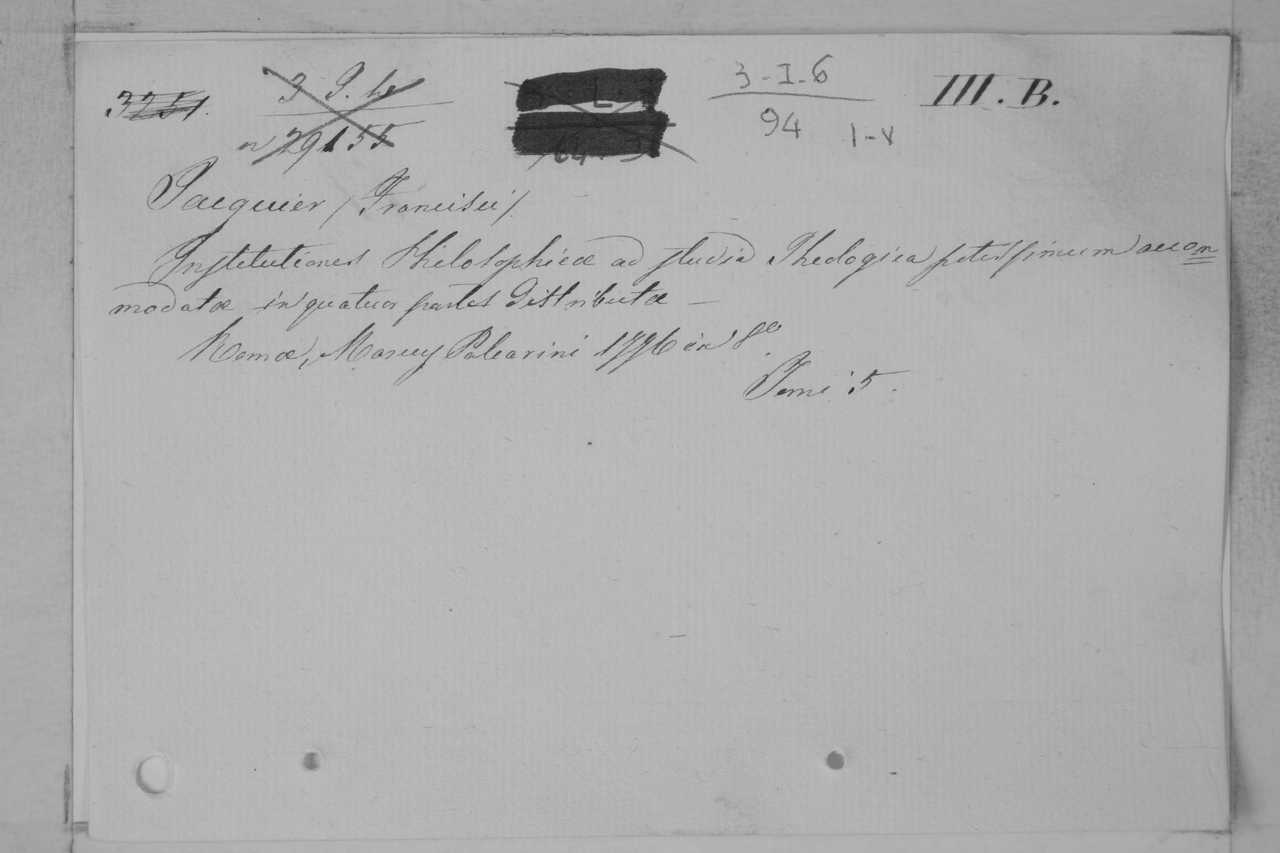 3251.
3 9. 6
n 29155
3-I-6
94 I-V
III. B.
Jacquier (Francisci)
Institutiones Philosophicæ ad studia Theologica potissimum accom
modatæ in quatuor partes distributæ —
Romæ, Marcy Palearini 1796 in 8º
Tomi 5.